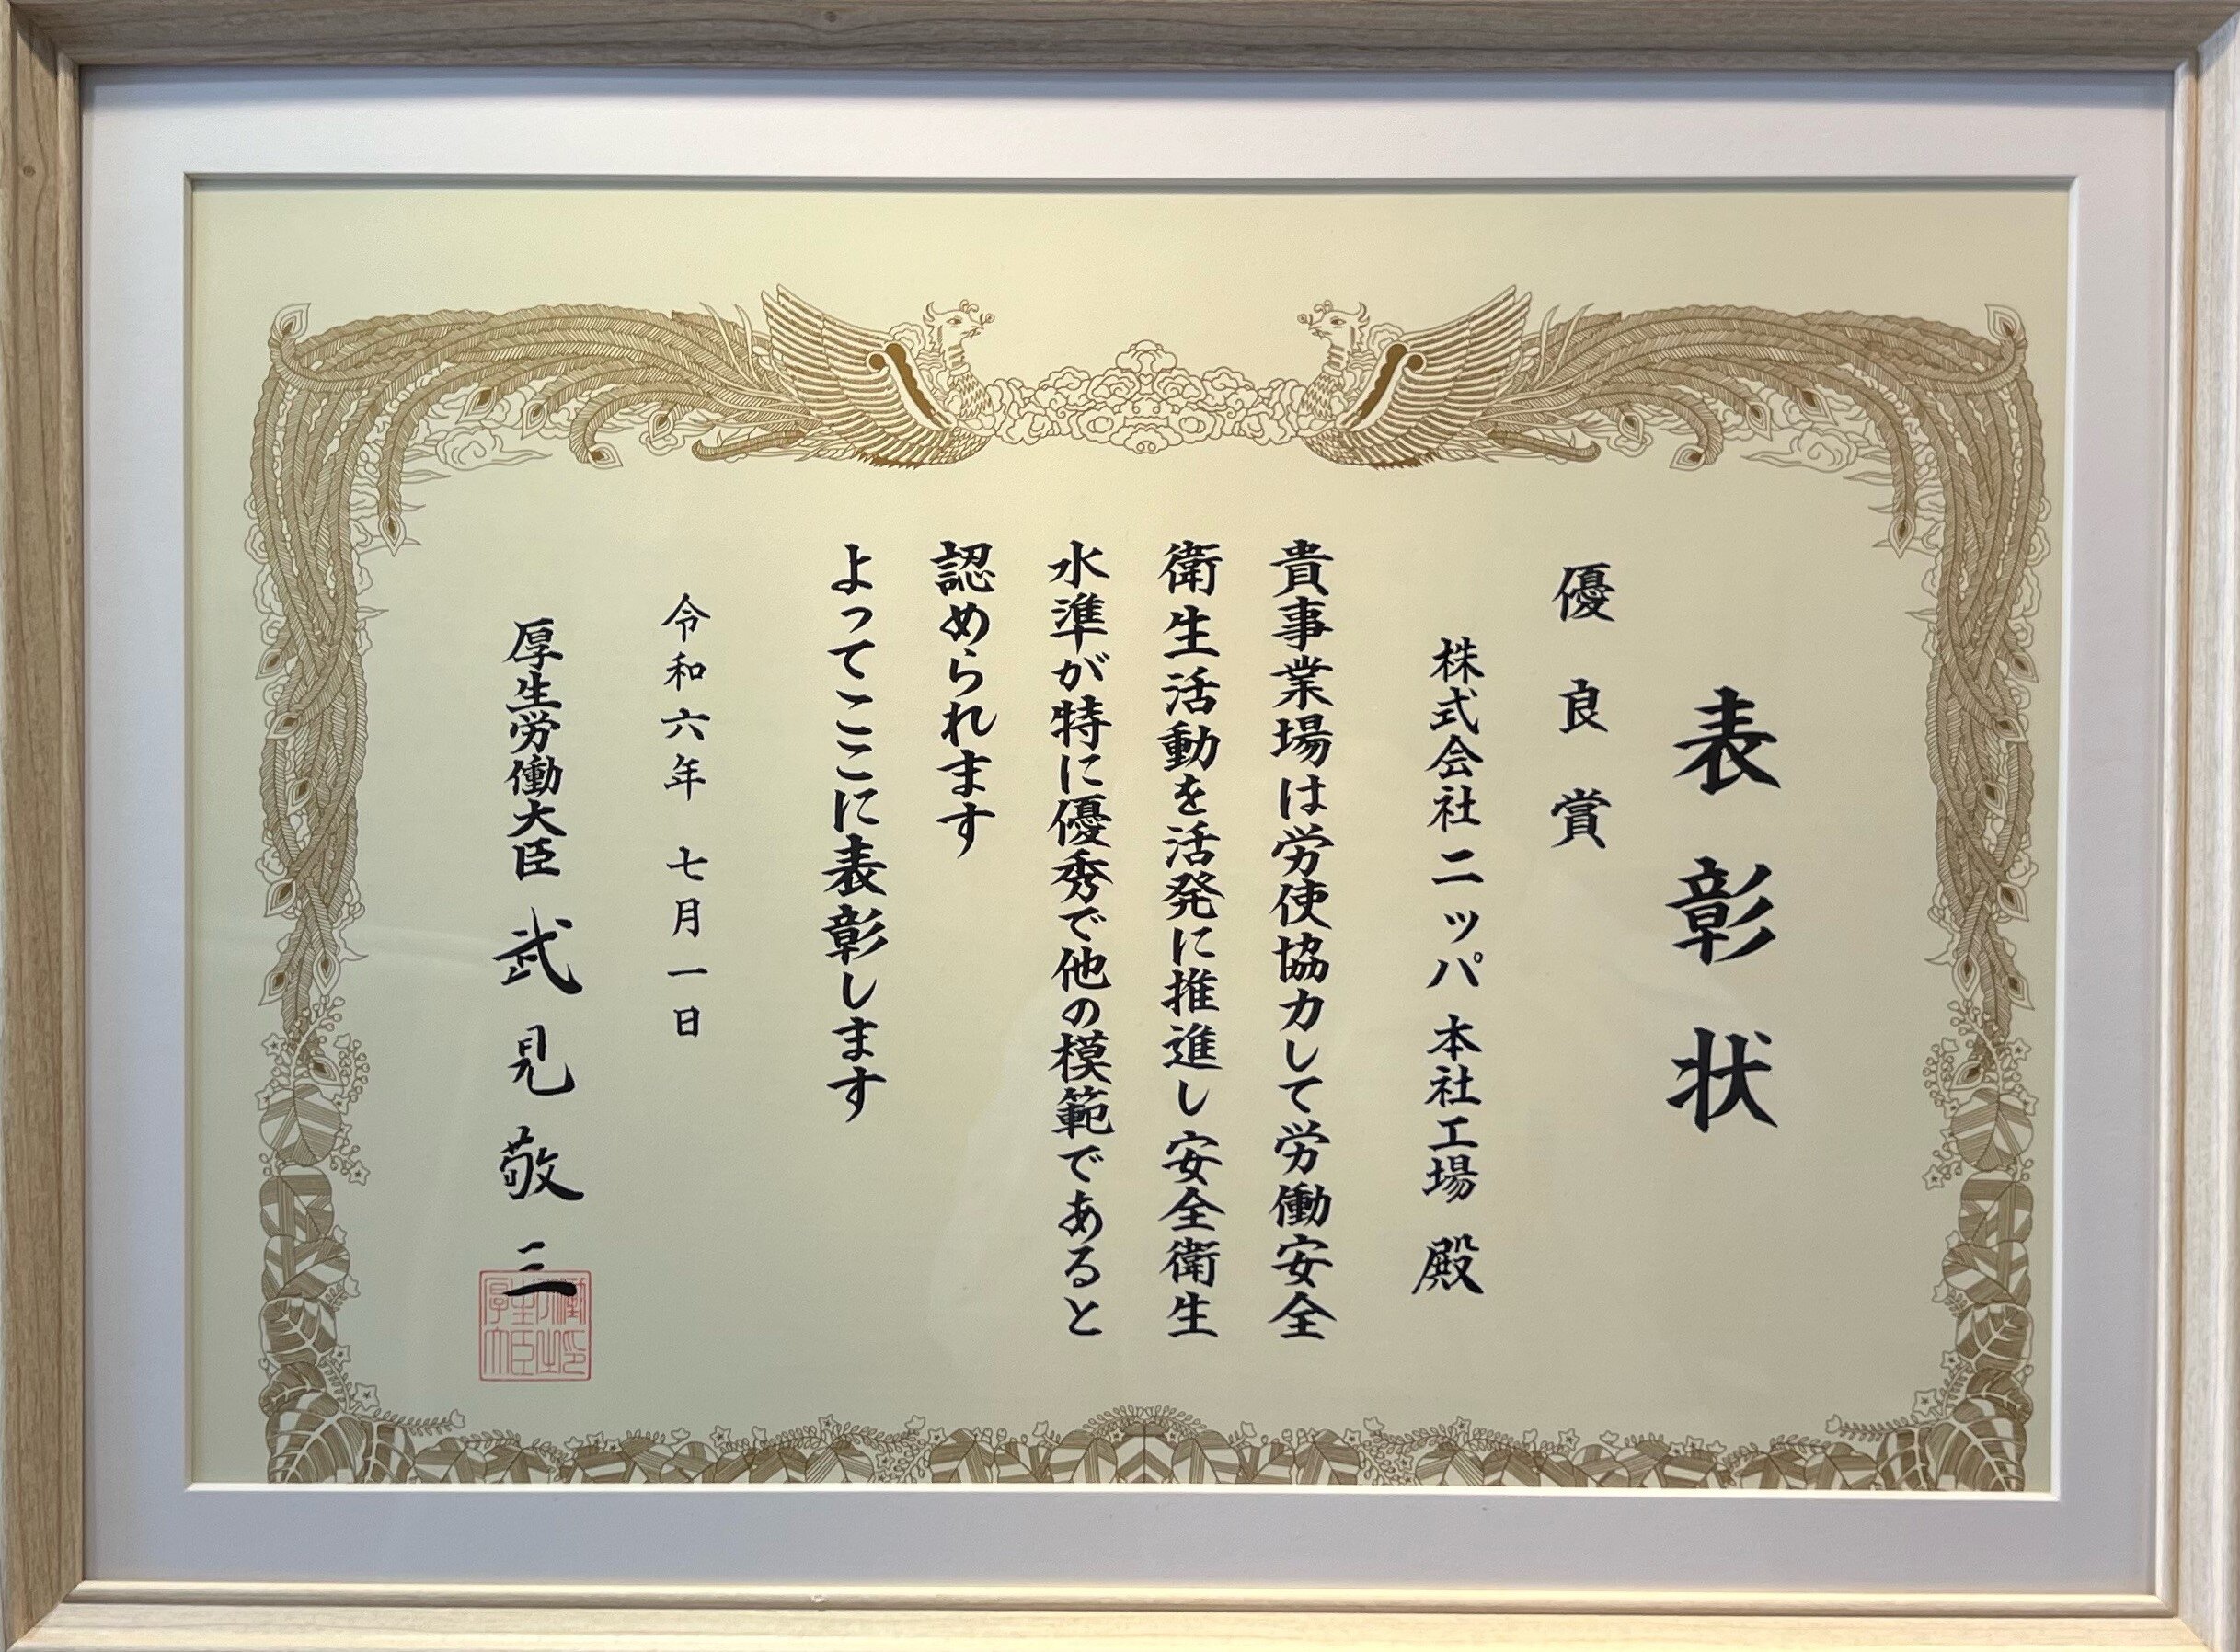 表彰状
優良賞
株式会社ニッパ 本社工場 殿
貴事業場は労使協力して労働安全
衛生活動を活発に推進し安全衛生
水準が特に優秀で他の模範であると
認められます
よってここに表彰します
令和六年 七月一日
厚生労働大臣 武見敬三